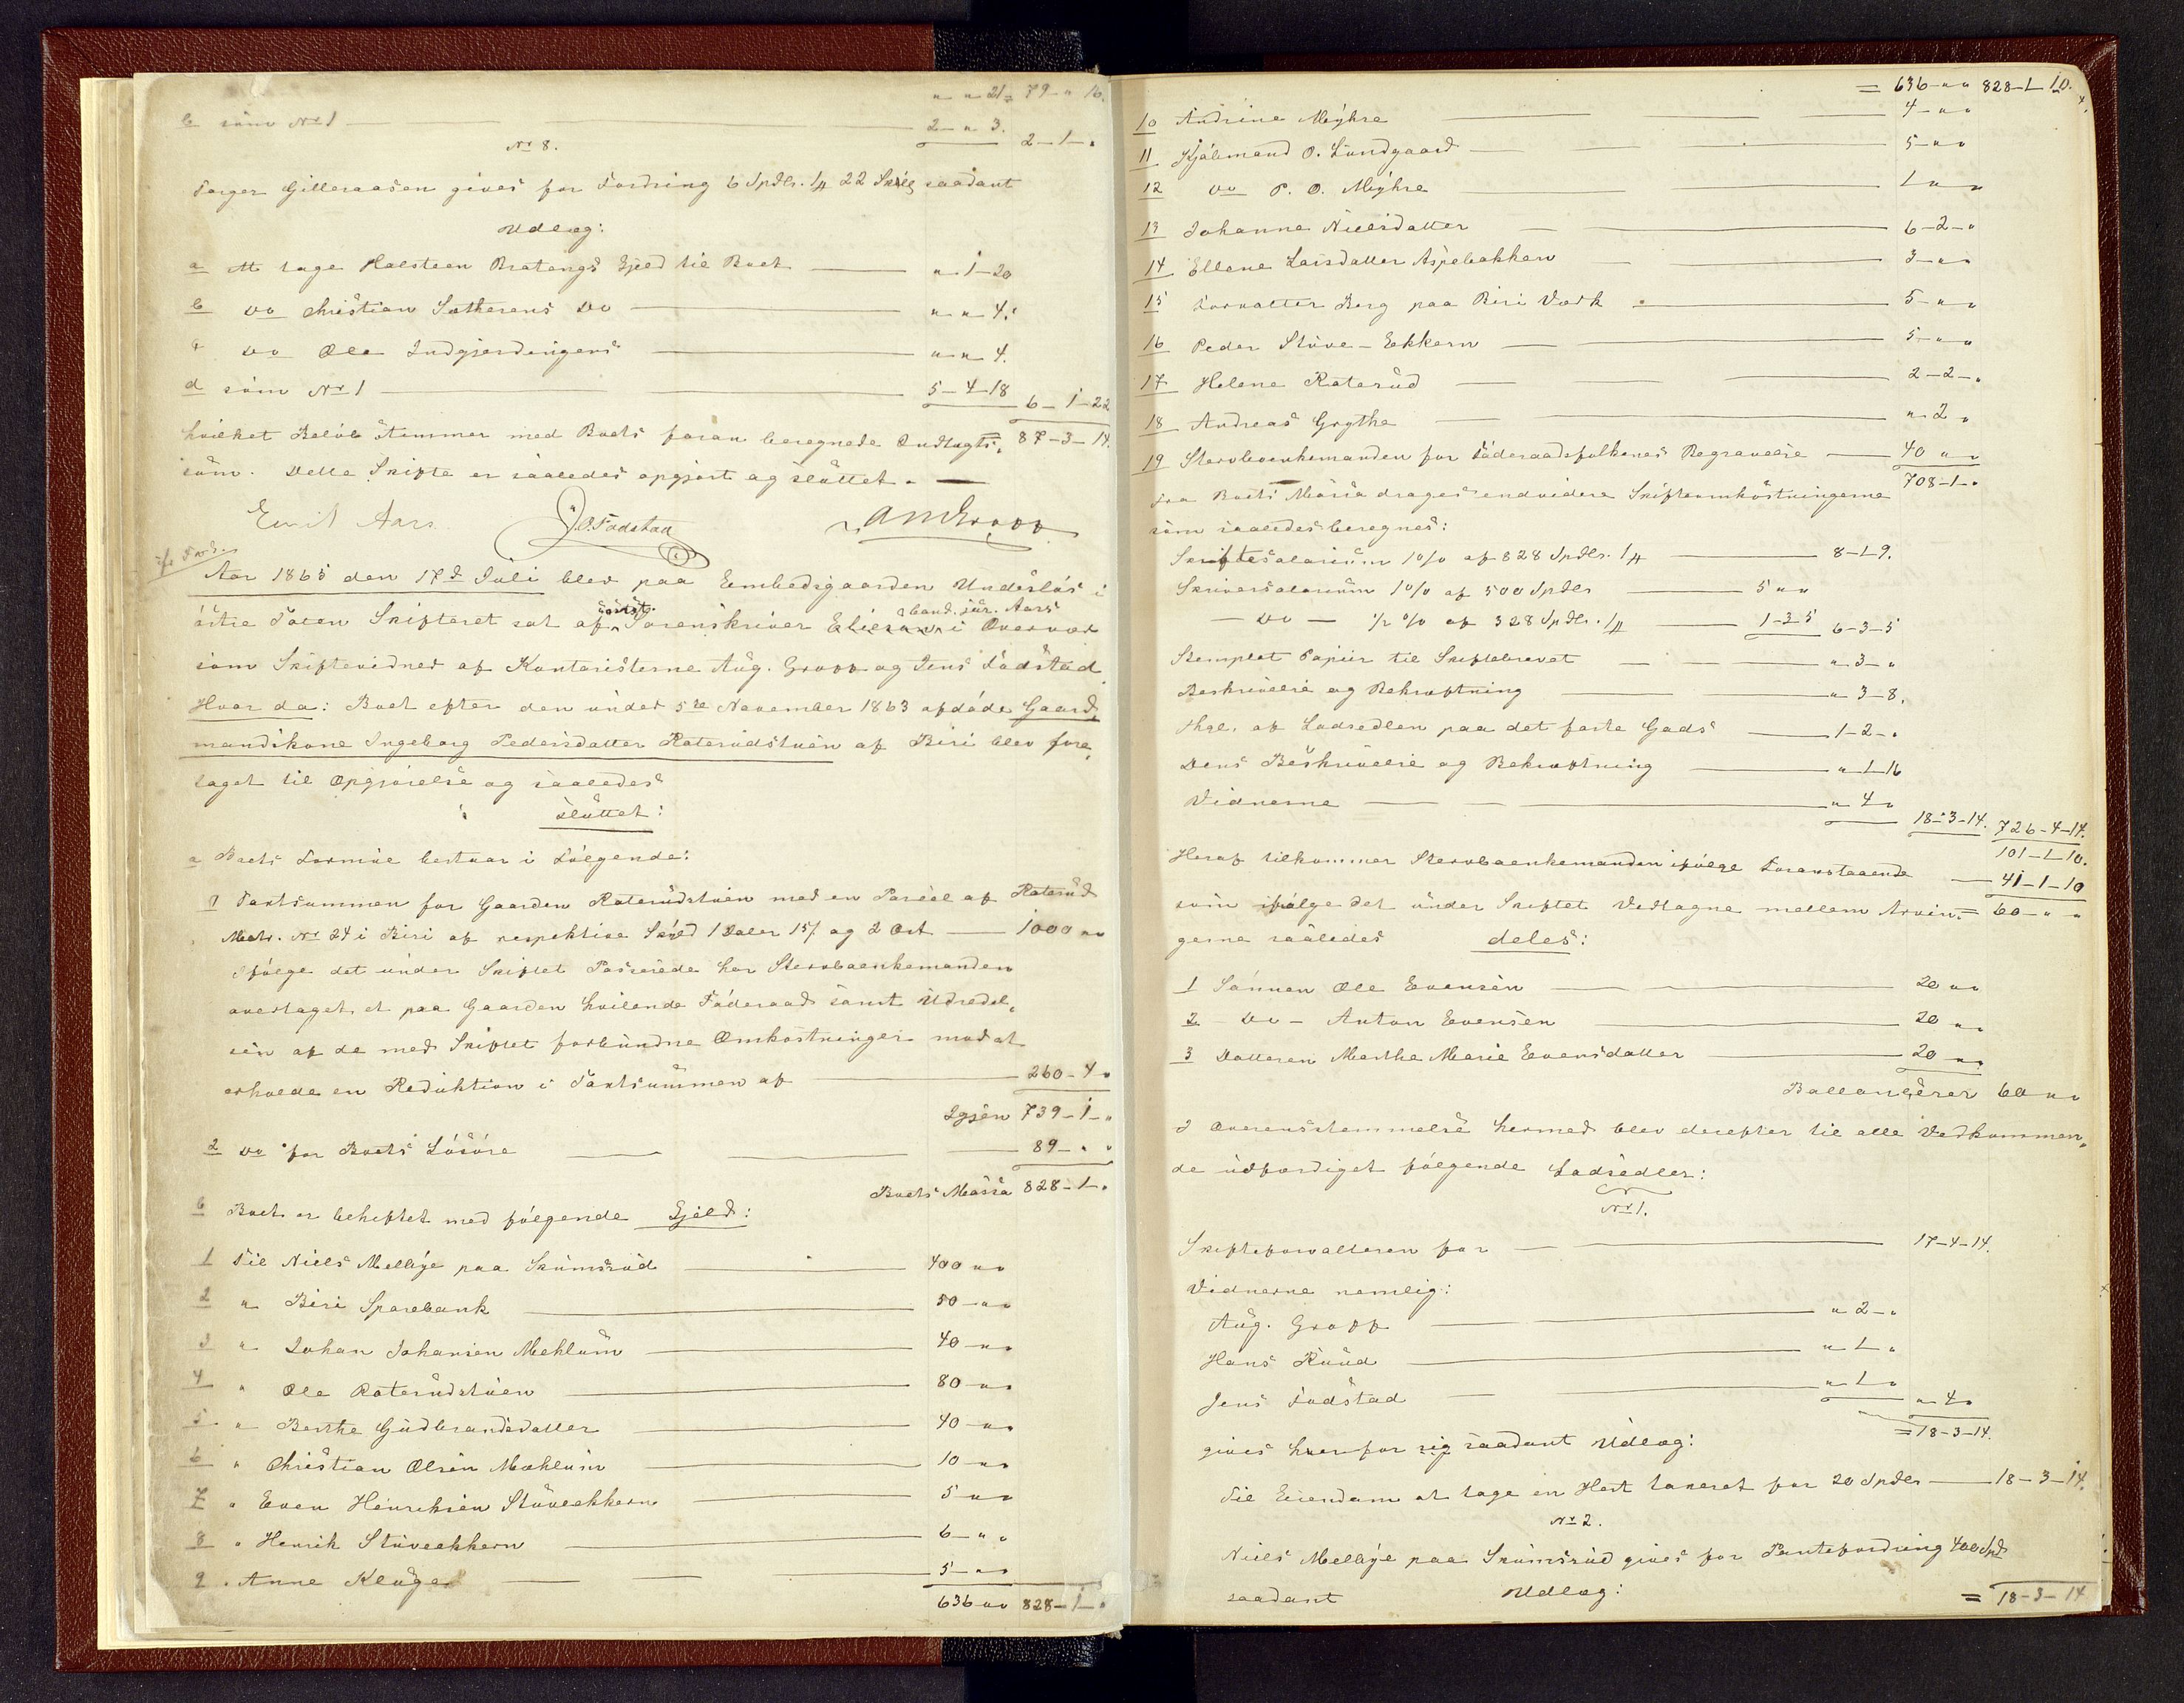 " " 21 = 79 - " 16.
b som No 1 2 - " 3. 2 - 1 - "
No 8.
Torger Gilleraasen gives for Fordring 6 Spdlr. 1 # 22 Skilg saadant
Udlæg:
a At tage Halsteen Bratengs Gjeld til Boet " 1 - 20
b Do Christian Sætherens Do " " 4.
c Do Ole Indgjerdingens " " 4.
d som No 1 5 - 4 - 18 6 - 1 - 22
hvilket Beløb stemmer med Boets foran beregnede Indtægts- = 87 - 3 - 14.
sum. Dette Skifte er saaledes opgjort og sluttet.
Emil Aars J. O. Fodstad A M Gropp
Aar 1865 den 17d Juli blev paa Embedsgaarden Undeslös i
östre Toten Skifteret sat af const. Sorenskriver Eliesons cand. jur. Aars i Overvær
som Skiftevidner af Kontoristerne Aug. Gropp og Jens Fodstad.
Hvor da: Boet efter den under 5te November 1863 afdøde Gaard-
mandskone Ingeborg Pedersdatter Raterudstuen af Biri blev fore-
taget til Opgjørelse og saaledes
sluttet:
a Boets Formue bestaar i Følgende:
1 Taxtsummen for Gaarden Raterudstuen med en Parcel af Raterud
Matr. No 24 i Biri af respektive Skyld 1 Daler 15 / og 2 Ort 1000 " "
Ifølge det under Skiftet Passerede har Stervboenkemanden
overtaget et paa Gaarden hvilende Föderaad samt Udredel-
sen af de med Skiftet forbundne Omkostninger mod at
erholde en Reduktion i Taxtsummen af 260 - 4 "
Igjen 739 - 1 - "
2 Do for Boets Løsöre 89 - " "
Boets Massa 828 - 1 - "
b Boet er beheftet med følgende Gjeld:
1 Til Niels Mellbye paa Skumsrud 400 " "
2 " Biri Sparebank 50 - " "
3 " Johan Johansen Mehlum 40 - " "
4 " Ole Raterudstuen 80 - " "
5 " Berthe Gudbrandsdatter 40 - " "
6 " Christian Olsen Mæhlum 10 - " "
7 " Even Henriksen Stuveekkern 5 - " "
8 " Henrik Stuveekkern 6 - " "
9 " Anne Kluge 5 - " "
636 " " 828 - 1 - "
= 636 - " " 828 - 1 - 10.
10 Andrine Myhre 4 - " "
11 Hjülmand O. Lundgaard 5 - " "
12 Do P. O. Myhre 1 " "
13 Johanne Nielsdatter 6 - 2 - "
14 Ellene Larsdatter Aspebakken 3 - " "
15 Forvalter Berg paa Biri Værk 5 - " "
16 Peder Stuve-Ekkern 5 - " "
17 Helene Raterud 2 - 2 - "
18 Andreas Grythe " 2 "
19 Stervboenkemanden for Föderaadsfolkenes Begravelse 40 " "
708 - 1 - "
Fra Boets Massa drages endvidere Skifteomkostningerne
som saaledes beregnes:
Skiftesalarium 1 % af 828 Spdlr. 1 # 8 - 1 - 9.
Skriversalarium 1 % af 500 Spdlr 5 " "
- Do - 1/2 % af 328 Spdlr. 1 # 1 - 3 - 5 6 - 3 - 5
Stemplet Papiir til Skiftebrevet " 3 - "
Beskrivelse og Bekræftning " 3 - 8.
Thgl. af Lodsedlen paa det faste Gods 1 - 2 - "
Dens Beskrivelse og Bekræftning " 1 - 16
Vidnerne " 4 "
18 - 3 - 14. 726 - 4 - 14.
101 - 1 - 10.
Heraf tilkommer Stervboenkemanden ifølge Foranstaaende 41 - 1 - 10
som ifølge det under Skiftet Vedtagne mellem Arvin- = 60 - " "
gerne saaledes deles:
1 Sønnen Ole Evensen 20 " "
2 - Do - Anton Evensen 20 " "
3 Datteren Marthe Marie Evensdatter 20 " "
Ballancerer 60 " "
I Overensstemmelse hermed blev derefter til alle Vedkommen-
de udfærdiget følgende Lodsedler:
No 1.
Skifteforvalteren for 17 - 4 - 14.
Vidnerne nemlig:
Aug. Gropp " 2 - "
Hans Ruud " 1 "
Jens Fodstad " 1 " " 4 "
= 18 - 3 - 14.
gives hver for sig saadant Udlæg:
Til Eiendom at tage en Hest taxeret for 20 Spdlr 18 - 3 - 14.
No 2.
Niels Mellbye paa Skumsrud gives for Pantefordring 400 Spd
saadant Udlæg: = 18 - 3 - 14